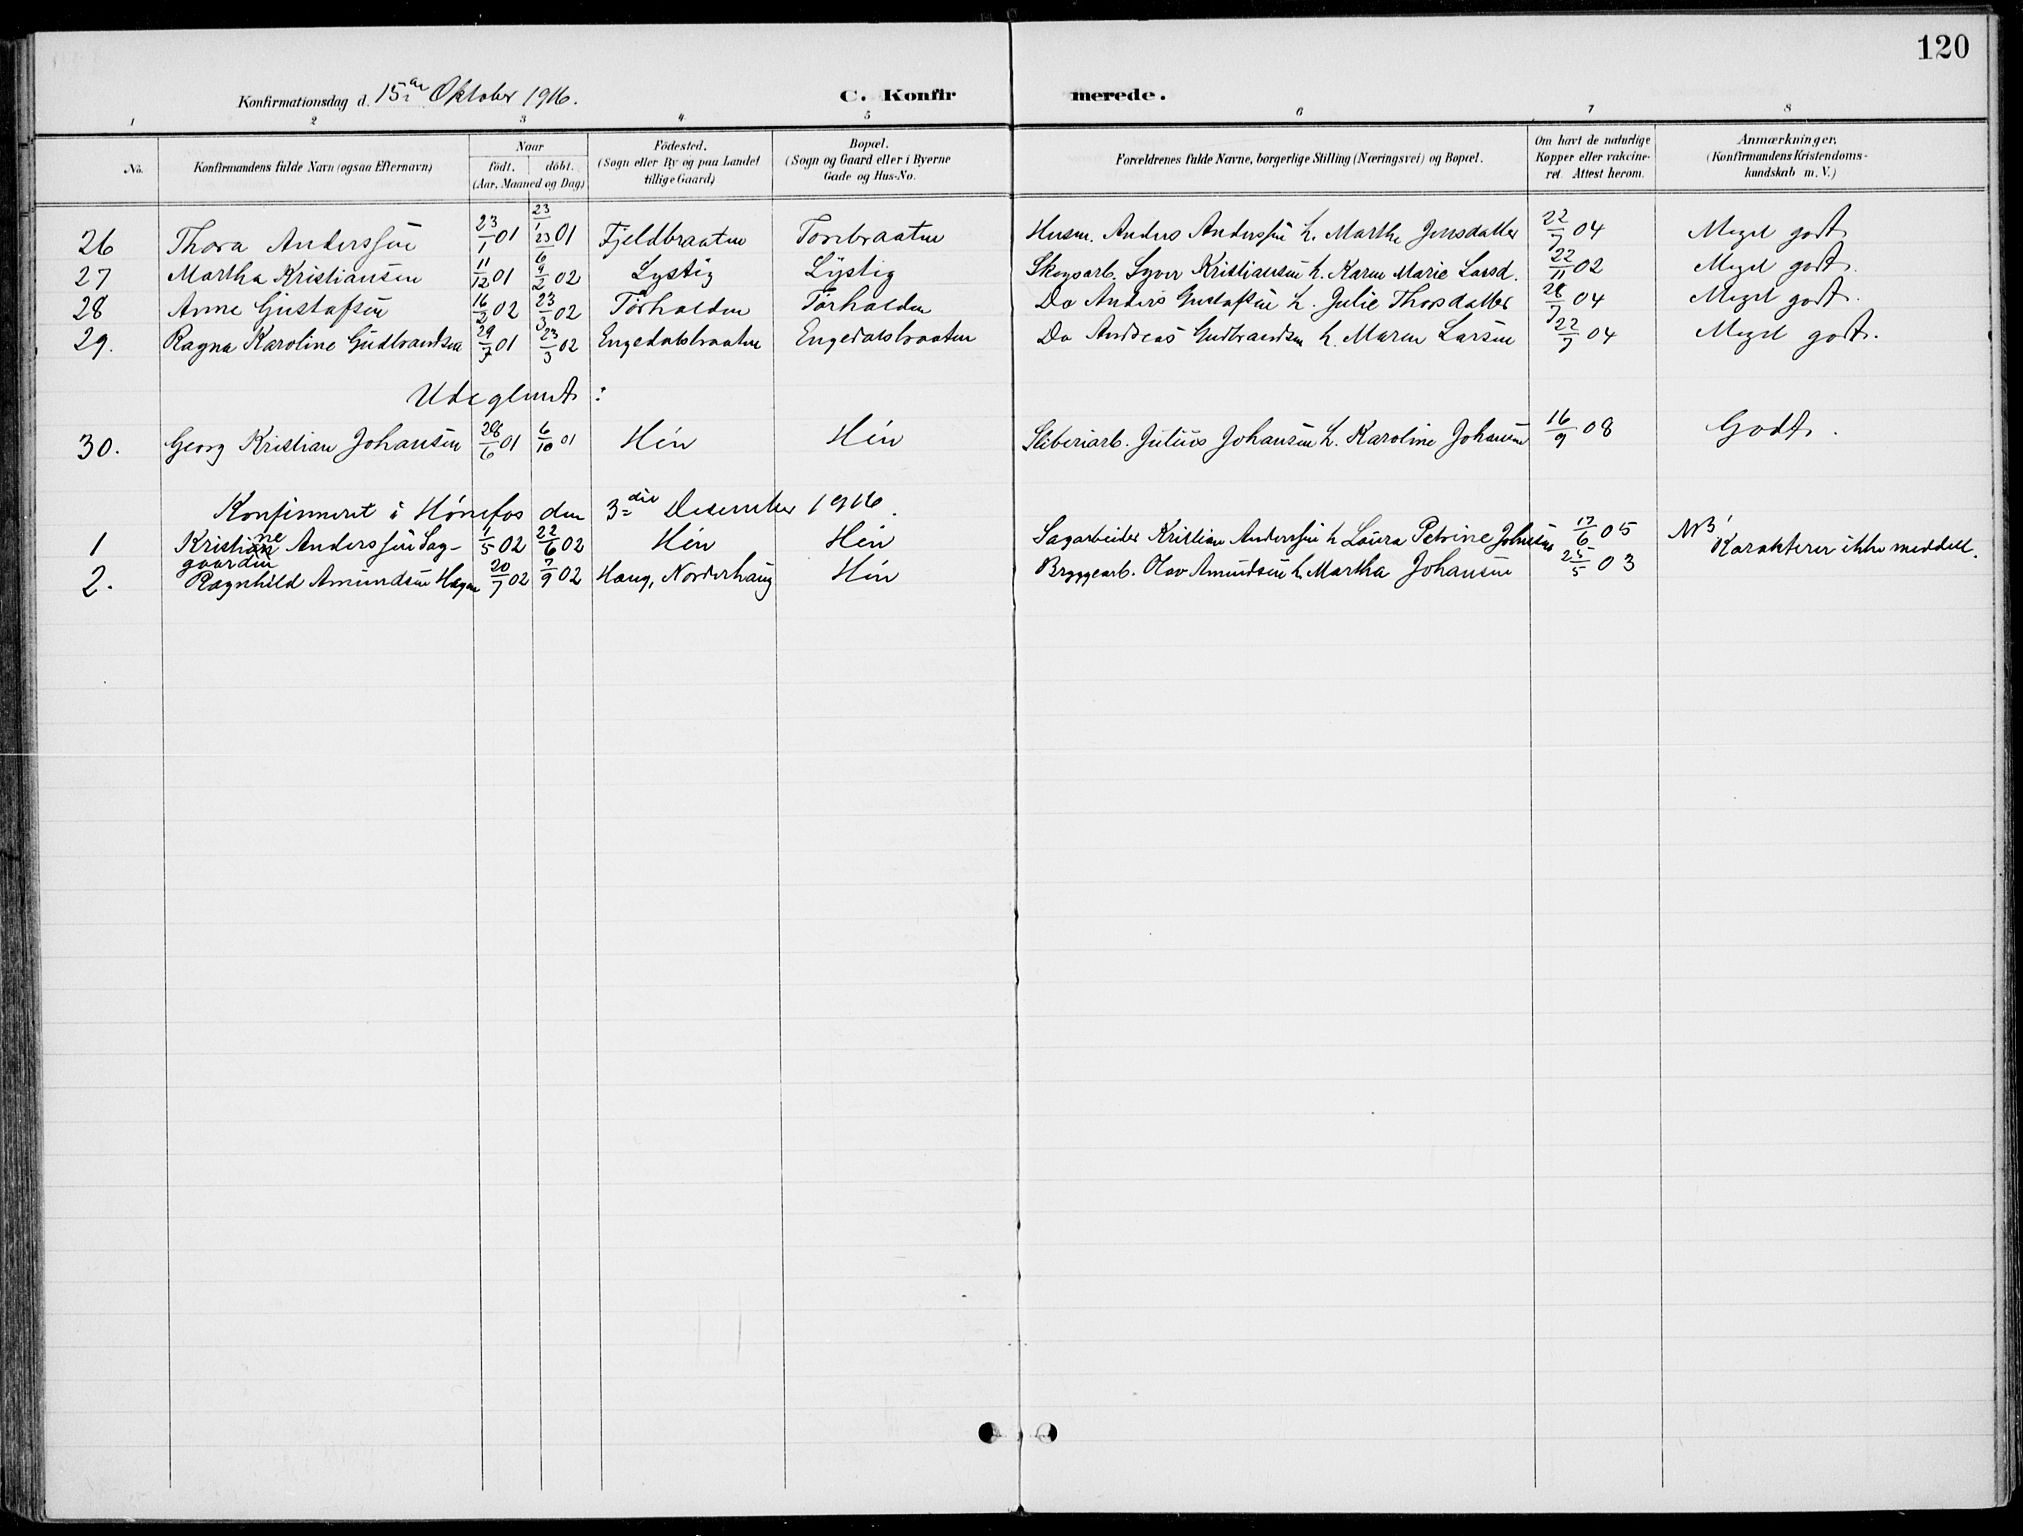 120
Konfirmationsdag d. 15de Oktober 1916.
C. Konfirmerede.
1 2 3 4 5 6 7 8
No. Konfirmandens fulde Navn (ogsaa Efternavn) Naar født. døbt. (Aar, Maaned og Dag) Fødested. (Sogn eller By og paa Landet tillige Gaard) Bopæl. (Sogn og Gaard eller i Byerne Gade og Hus-No. Forældrenes fulde Navne, borgerlige Stilling (Næringsvei) og Bopæl. Om havt de naturlige Kopper eller vakcineret. Attest herom. Anmærkninger. (Konfirmandens Kristendomskundskab m. V.)
26 Thora Anderssen 23/1 01 23/1 01 Fjeldbraaten Torebraaten Husm. Anders Anderssen h. Marthe Jensdatter 22/7 04 Meget godt
27 Martha Kristiansen 11/12 01 9/2 02 Lystig Lystig Skogsarb. Syver Kristiansen h. Karen Marie Larsd. 22/11 02 Meget godt.
28 Anne Gustafsen 16/2 02 23/3 02 Tørholden Tørholden Do Anders Gustafsen h. Julie Thorsdatter 28/7 04 Meget godt.
29. Ragna Karoline Gudbrandsen 29/7 01 23/3 02 Engedalsbraaten Engedalsbraaten Do Andreas Gudbrandsen h. Maren Larsen 22/7 04 Meget godt.
Udeglemt:
30. Georg Kristian Johansen 28/6 01 6/10 01 Hén Hén Sliberiarb. Julius Johansen h. Karoline Johansen 16/9 08 Godt.
Konfirmeret i Hønefos den 3die Desember 1916.
1 Kristiane Anderssen Sag- 1/5 02 22/6 02 Hén Hén Sagarbeider Kristian Anderssen h Laura Petrine Johnsen 17/6 05 NB!
gaarden Karakterer ikke meddelt.
2. Ragnhild Amundsen Hagen 20/7 02 7/9 02 Haug, Norderhaug Hén Bryggearb. Olav Amundsen h. Martha Johansen 25/5 03